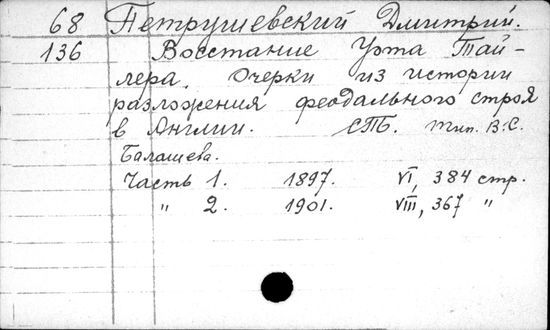 68 Петрушевский Дмитрий.
136 Восстание Уэта Тай-
лера. Очерки из истории
разложения феодального строя
в Англии. СПБ. тип. В.С.
Балашева.
Часть 1. 1897. VI, 384 стр.
" 2. 1901. VIII, 367 "